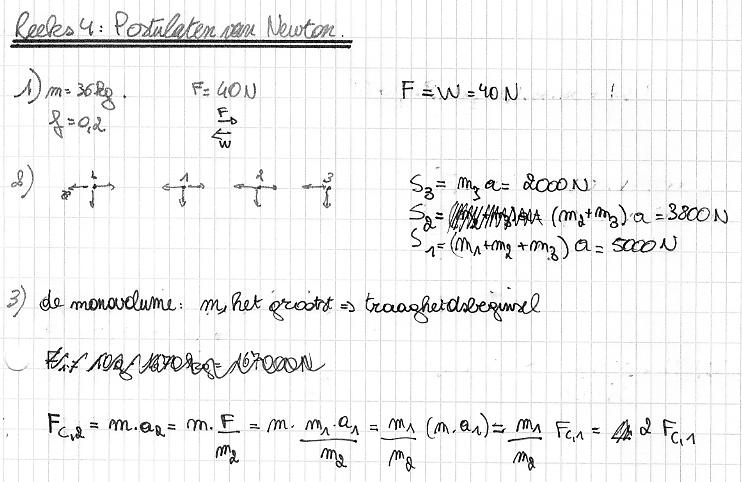 Reeks 4: Postulaten van Newton.
1) m = 36 kg. F = 40 N F = W = 40 N !
f = 0,2 F
W
2) L 1 2 3 S₃ = m₃ a = 2000 N
S₂ = (m₂+m₃) a = 3800 N
S₁ = (m₁+m₂+m₃) a = 5000 N
3) de monovolume: m₁ het grootst ⇒ traagheidsbeginsel
F_{C,2} = m.a₂ = m. F/m₂ = m. m₁.a₁/m₂ = m₁/m₂ (m.a₁) = m₁/m₂ F_{C,1} = 2 F_{C,1}